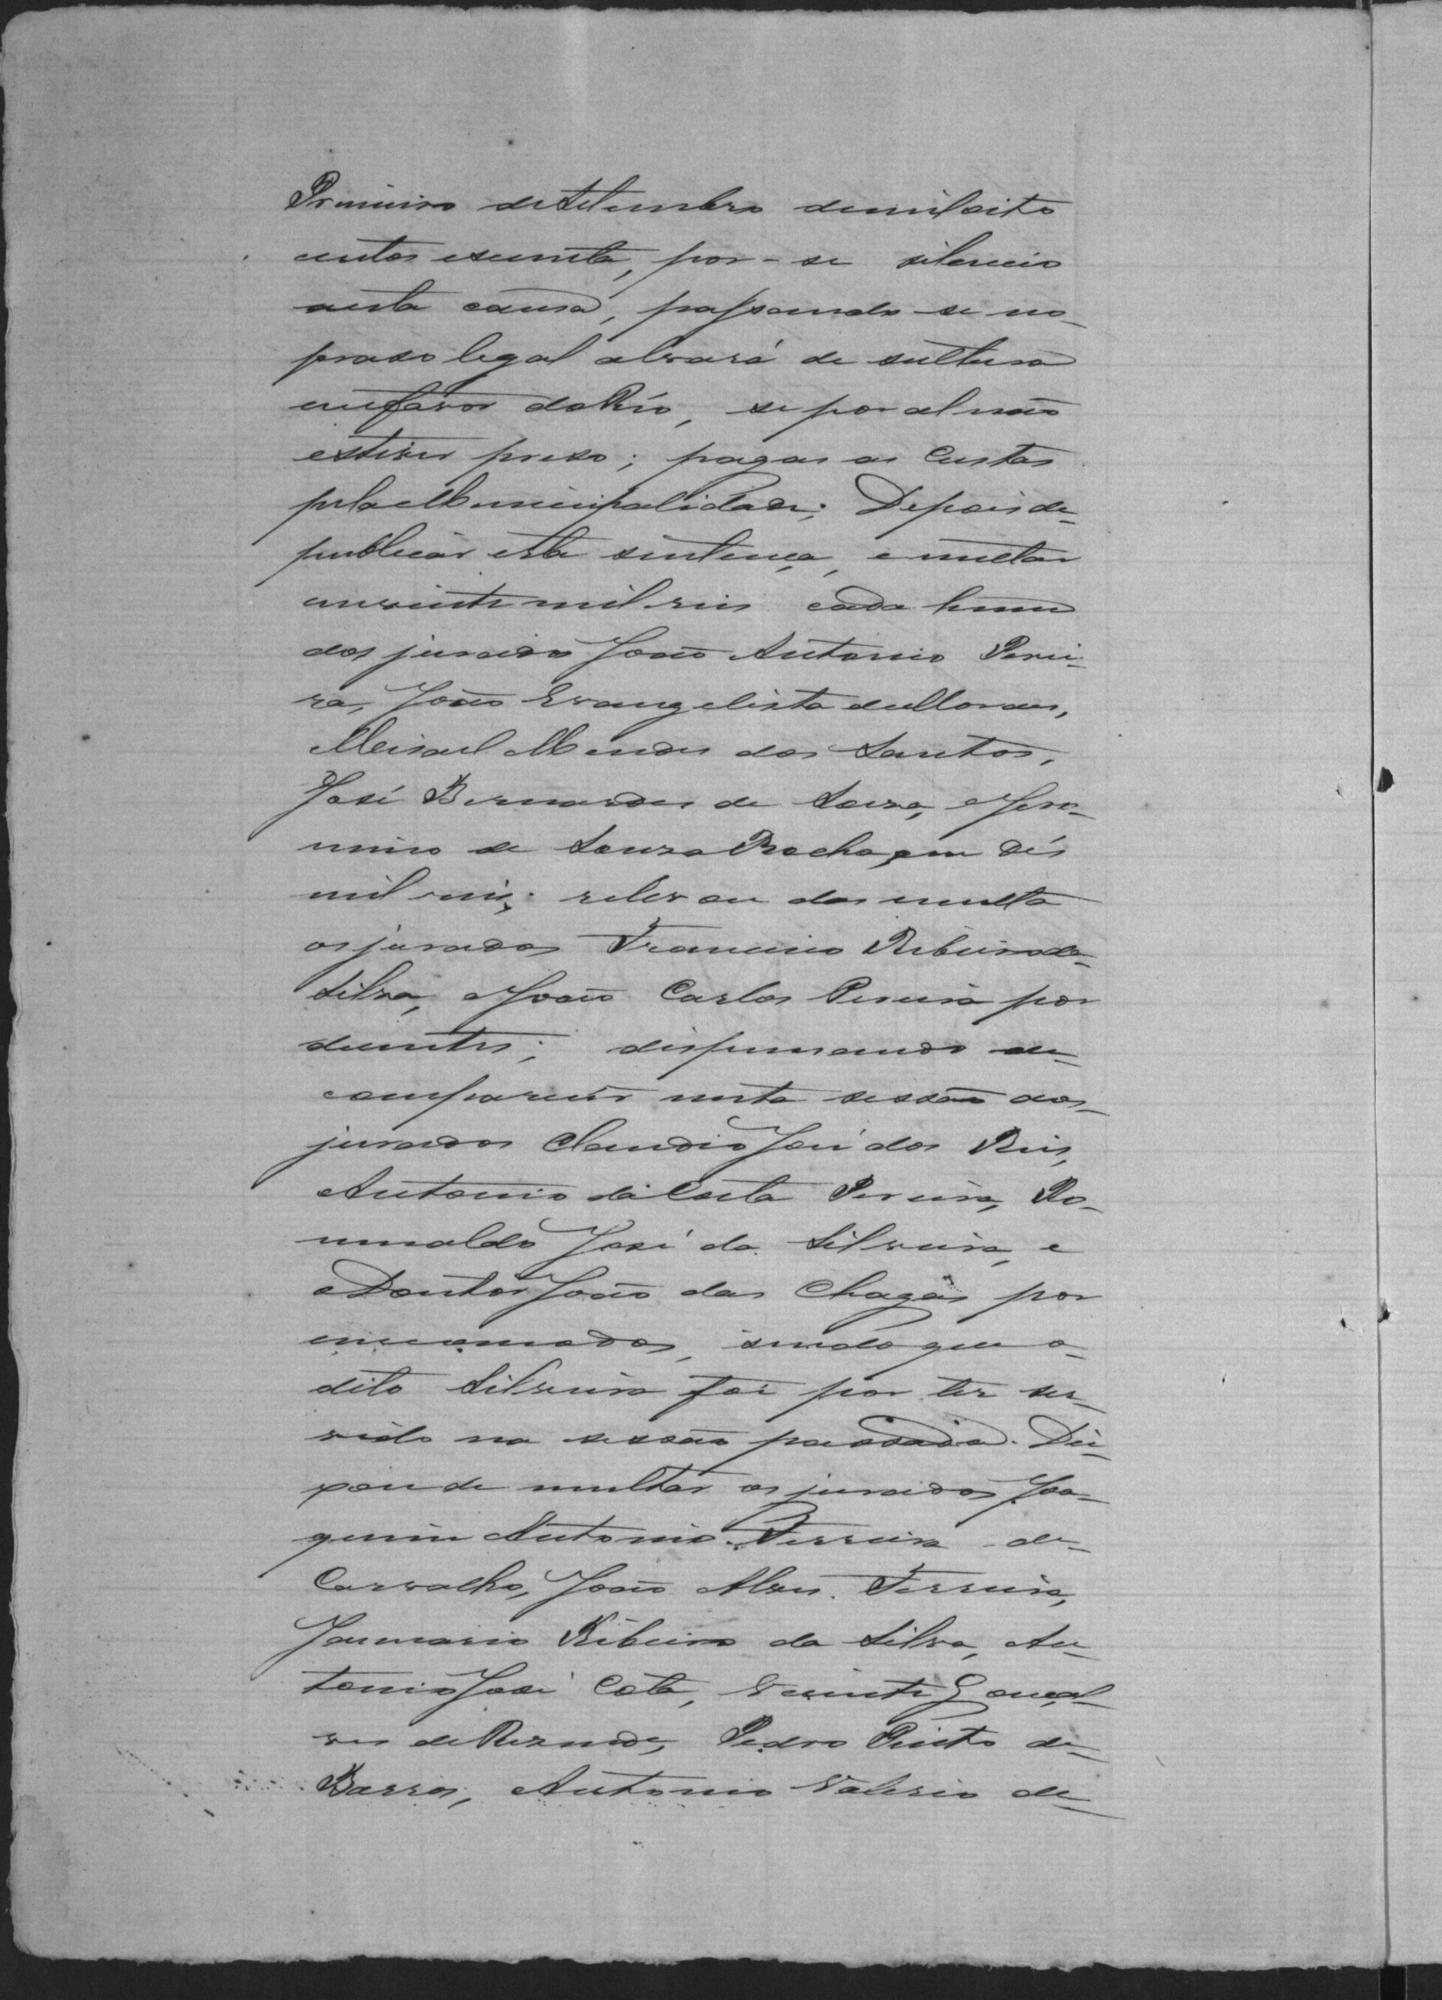 Primeiro de Setembro de mil oito
centos esesenta, por-se silencio
nesta causa, passando-se no
praso legal alvará de sultura
em favor do Réo, se por al não
estiver preso; pagas as Custas
pela Municipalidade; Depois de
publicar esta sentença, e multar
em vinte mil reis cada hum
dos jurados João Antonio Perei-
ra, João Evangelista de Moraes,
Misael Mendes dos Santos,
José Bernardes de Souza, e Jero-
nimo de Souza Rocha, em dés
mil reis; relevou das multa
os jurados Francisco Ribeiro da
Silva, e João Carlos Pereira por
doentes; dispensando de
comparecer nesta sessão aos
jurados Claudio José dos Reis,
Antonio da Costa Pereira, Ro-
mualdo José da Silveira, e
o Doutor João das Chagas por
incomodos, sendo que o
dito Silveira foi por ter ser-
vido na sessão passada. Dei-
xou de multar os jurados Joa-
quim Antonio Ferreira de
Carvalho, João Alves Ferreira,
Januario Ribeiro da Silva, An-
tonio José Cota, Vicente Gonçal-
ves de Rezende, Pedro Pinto de
Barros, Antonio Valerio de